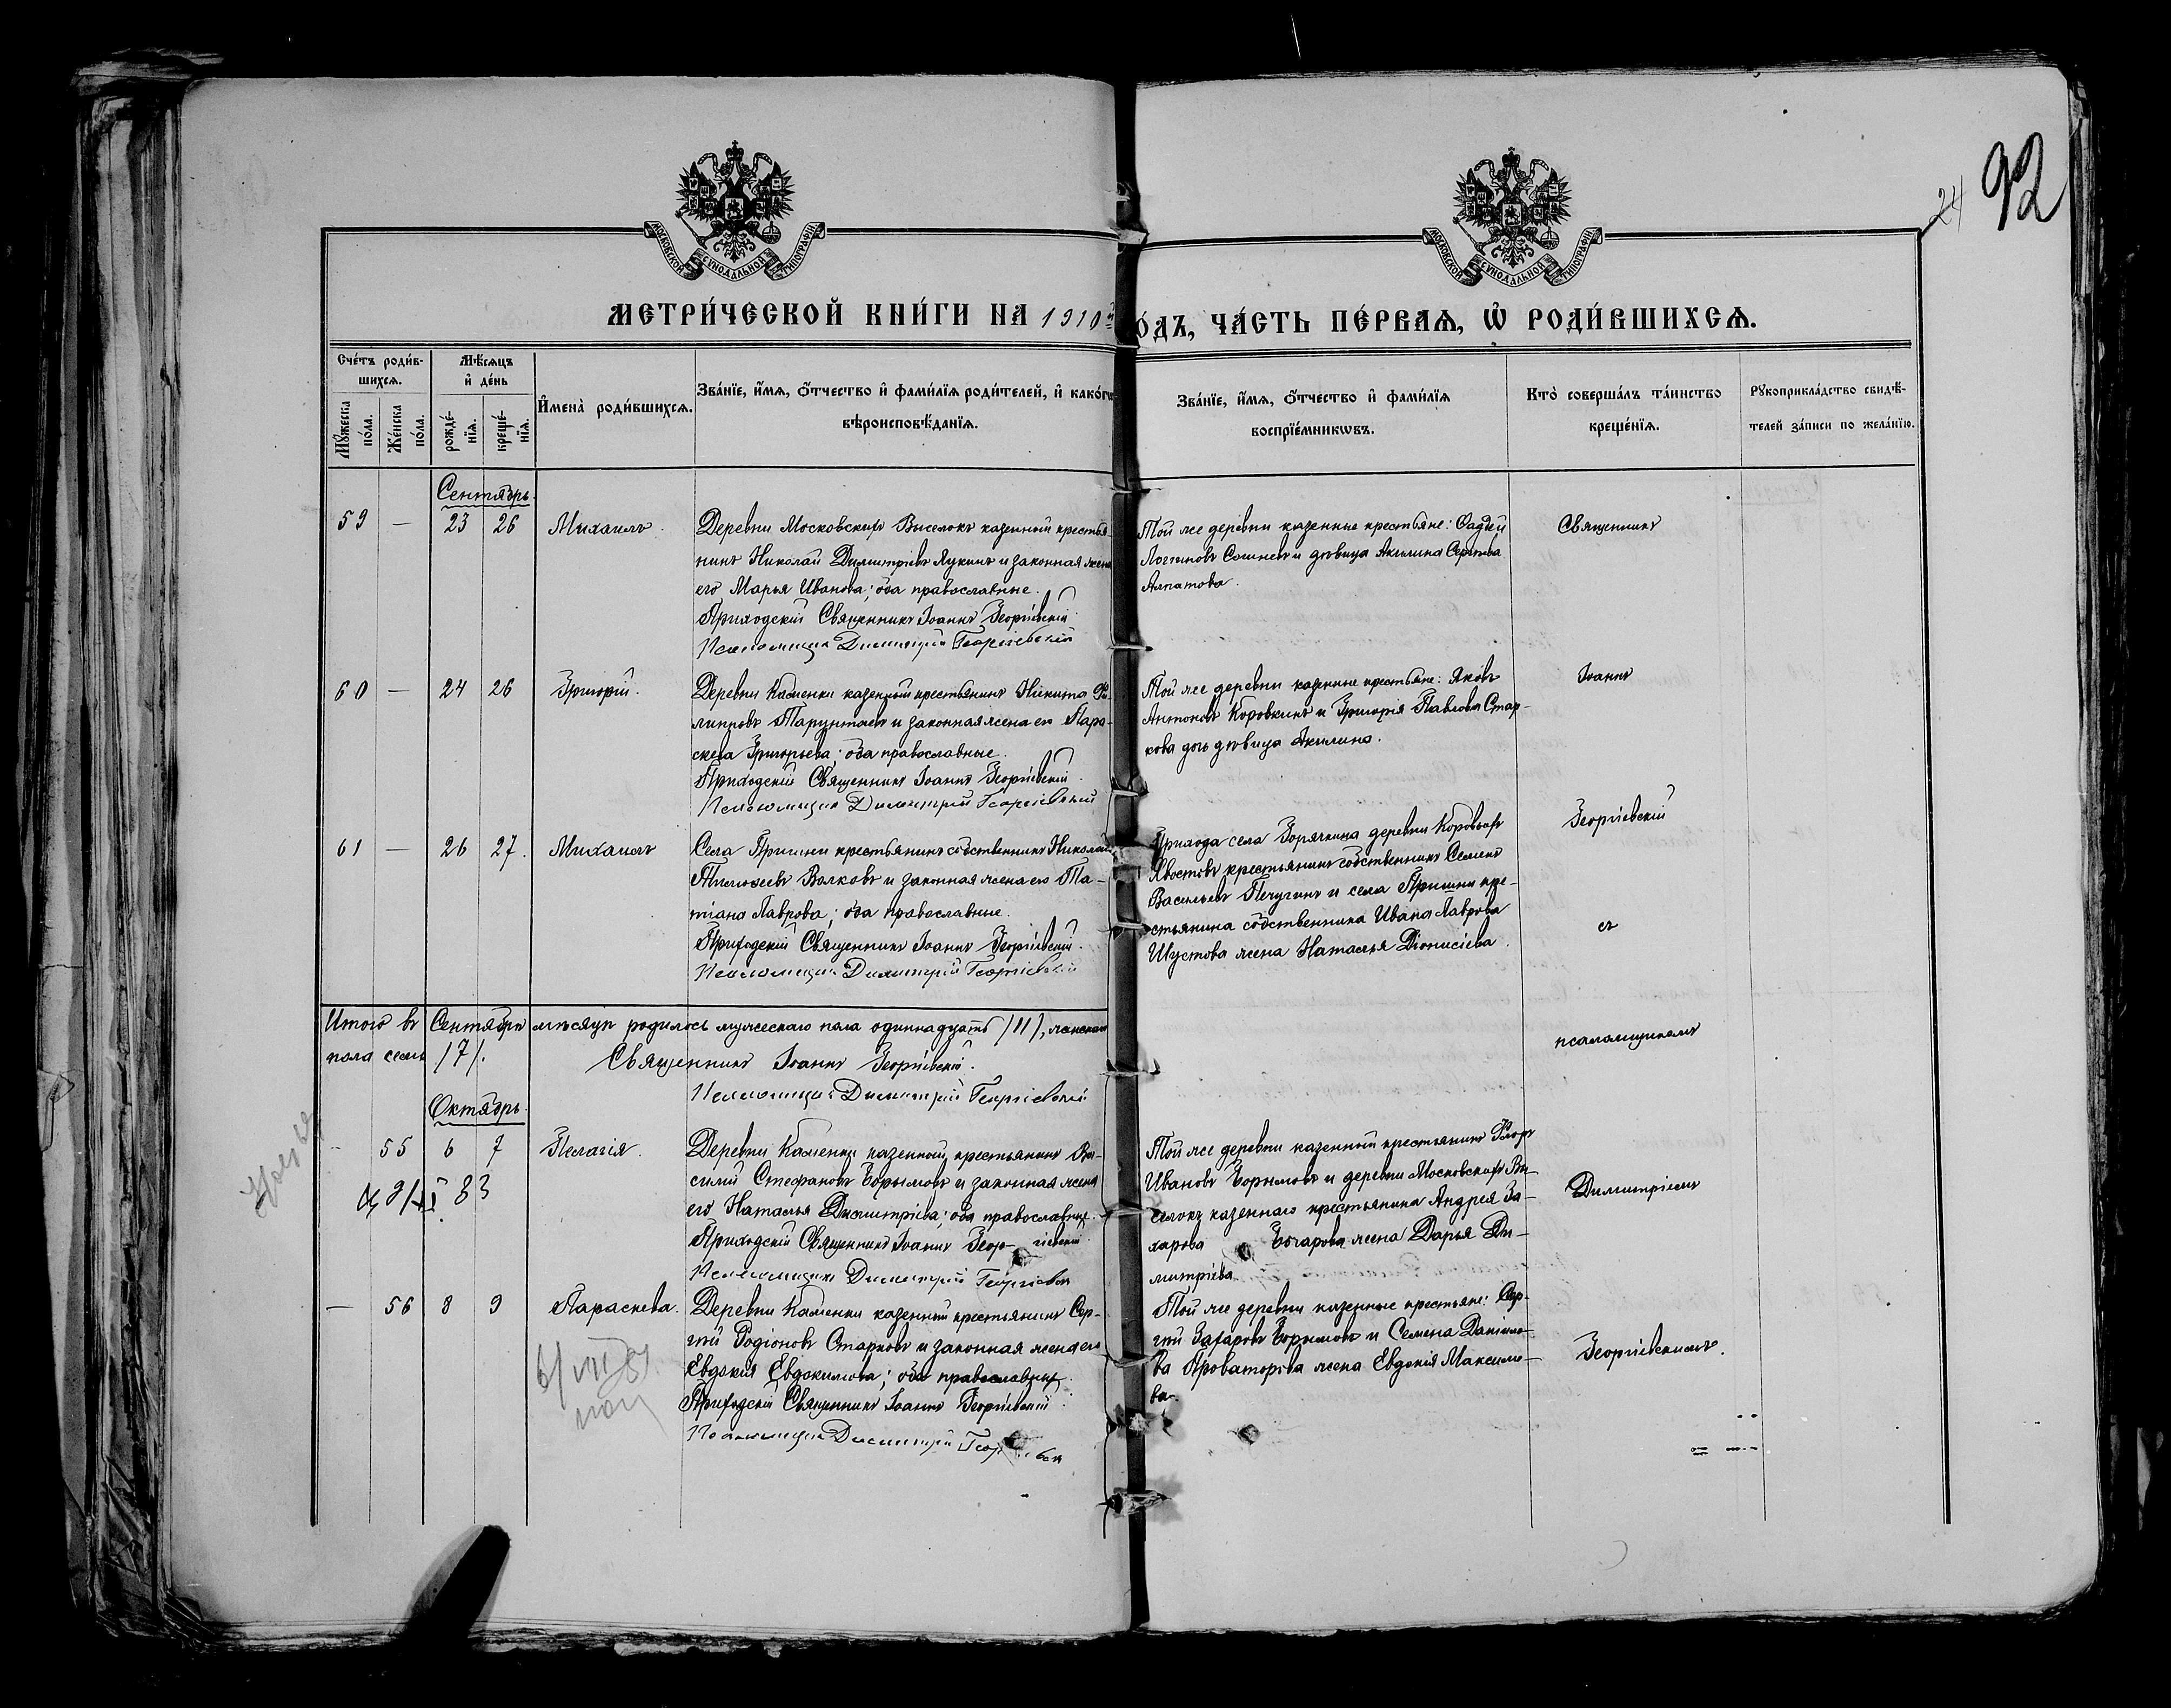 92
24
МОСКОВСКОЙ СѴНОДАЛЬНОЙ ТИПОГРАФІИ
МОСКОВСКОЙ СѴНОДАЛЬНОЙ ТИПОГРАФІИ
МЕТРИ́ЧЕСКОЙ КНИ́ГИ НА 1910й
О́ДЪ, ЧА́СТЬ ПЕ́РВАѦ, Ѡ҆ РОДИ́ВШИХСѦ.
Сче́тъ роди́в-
шихсѧ.
Мѣ́сѧцъ
и҆ де́нь
Мꙋ́жеска по́ла.
Же́нска по́ла.
рожде́-
нїѧ.
креще́-
нїѧ.
И҆мена̀ роди́вшихсѧ.
Зва́нїе, и҆́мѧ, ѻ҆́тчество и҆ фами́лїѧ роди́телей, и҆ како́гѡ
вѣроисповѣ́данїѧ.
Зва́нїе, и҆́мѧ, ѻ҆́тчество и҆ фами́лїѧ
воспрїе́мникѡвъ.
Кто̀ соверша́лъ та́инство
креще́нїѧ.
Рꙋкоприкла́дство свидѣ́-
телей за́писи по жела́нїю.
Сентябрь.
59 — 23 26 Михаилъ.
Деревни Московскихъ Выселокъ казенный крестья-
нинъ Николай Димитріевъ Лукинъ и законная жена
его Марья Иванова; оба православные.
Приходскій Священникъ Іоаннъ Георгіевскій.
Псаломщикъ Димитрій Георгіевскій
Той же деревни казенные крестьяне: Фаддей
Логгиновъ Сошневъ и девица Акилина Сергѣева
Алпатова.
Священникъ
60 — 24 26 Григорій.
Деревни Каменки казенный крестьянинъ Никита Фи-
липповъ Тарунтаевъ и законная жена его Пара-
скева Григорьева; оба православные.
Приходскій Священникъ Іоаннъ Георгіевскій.
Псаломщикъ Димитрій Георгіевскій
Той же деревни казенные крестьяне: Яковъ
Антоновъ Коровкинъ и Григорія Павлова Стар-
кова дочь дѣвица Акилина.
Іоаннъ
Георгіевскій
61 — 26 27. Михаилъ
Села Пришни крестьянинъ собственникъ Николай
Тимоѳеевъ Волковъ и законная жена его Та-
тіана Лаврова; оба православные.
Приходскій Священникъ Іоаннъ Георгіевскій.
Псаломщикъ Димитрій Георгіевскій
Прихода села Горячкина деревни Коровьихъ
Хвостовъ крестьянинъ собственникъ Семенъ
Васильевъ Печугинъ и села Пришни кре-
стьянина собственника Ивана Лаврова
Шустова жена Наталья Діонисіева.
съ
Итого въ Сентябрѣ мѣсяцѣ родилось мужескаго пола одиннадцать /11/, женскаго
пола семь /7/.
Священникъ Іоаннъ Георгіевскій.
Псаломщикъ Димитрій Георгіевскій
псаломщикомъ
Октябрь.
— 55 6 7 Пелагія.
83
Деревни Каменки казенный крестьянинъ Ва-
силій Стефановъ Борымовъ и законная жена
его Наталья Димитріева; оба православные.
Приходскій Священникъ Іоаннъ Георгіевскій
Псаломщикъ Димитрій Георгіевск
Той же деревни казенный крестьянинъ Флоръ
Ивановъ Борымовъ и деревни Московскихъ Вы-
селокъ казеннаго крестьянина Андрея За-
харова Бочарова жена Дарья Ди-
митріева
Димитріемъ
— 56 8 9 Параскева.
Деревни Каменки казенный крестьянинъ Сер-
гѣй Родіоновъ Старковъ и законная жена его
Евдокія Евдокимова; оба православные.
Приходскій Священникъ Іоаннъ Георгіевскій.
Псаломщикъ Димитрій Георгіевск
Той же деревни казенные крестьяне: Сер-
гѣй Захаровъ Борымовъ и Семена Данило-
ва Проваторова жена Евдокія Максимо-
ва.
Георгіевскимъ.